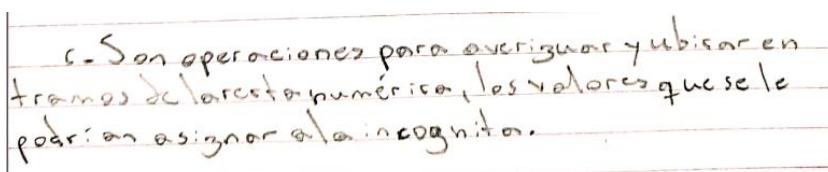 c-Son operaciones para averiguar y ubicar en
tramos de la resta numérica, los valores que se le
podrían asignar a la incognita.